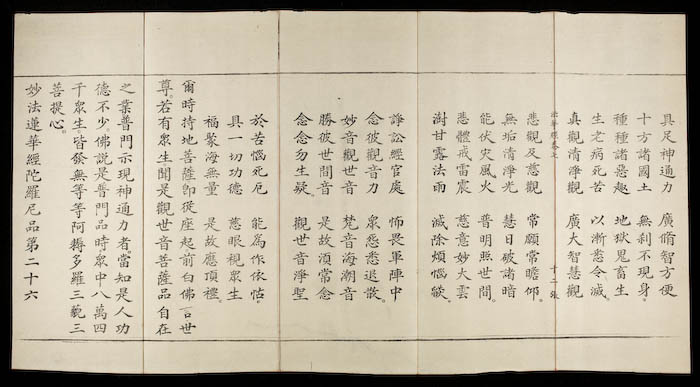 具足神通力　廣脩智方便
十方諸國土　無刹不現身。
種種諸惡趣　地獄鬼畜生
生老病死苦　以漸悉令滅。
真觀清淨觀　廣大智慧觀
法華經卷七　十二張
悲觀及慈觀　常願常瞻仰。
無垢清淨光　慧日破諸暗
能伏灾風火　普明照世間。
悲體戒雷震　慈意妙大雲
澍甘露法雨　滅除煩惱燄。
諍訟經官處　怖畏軍陣中
念彼觀音力　衆怨悉退散。
妙音觀世音　梵音海潮音
勝彼世間音　是故須常念
念念勿生疑。　觀世音淨聖
於苦惱死厄　能爲作依怙。
具一切功德　慈眼視衆生
福聚海無量　是故應頂禮。
爾時持地菩薩即從座起前白佛言世
尊。若有衆生聞是觀世音菩薩品自在
之業普門示現神通力者當知是人功
德不少。佛說是普門品時衆中八萬四
千衆生。皆發無等等阿耨多羅三藐三
菩提心。
妙法蓮華經陀羅尼品第二十六